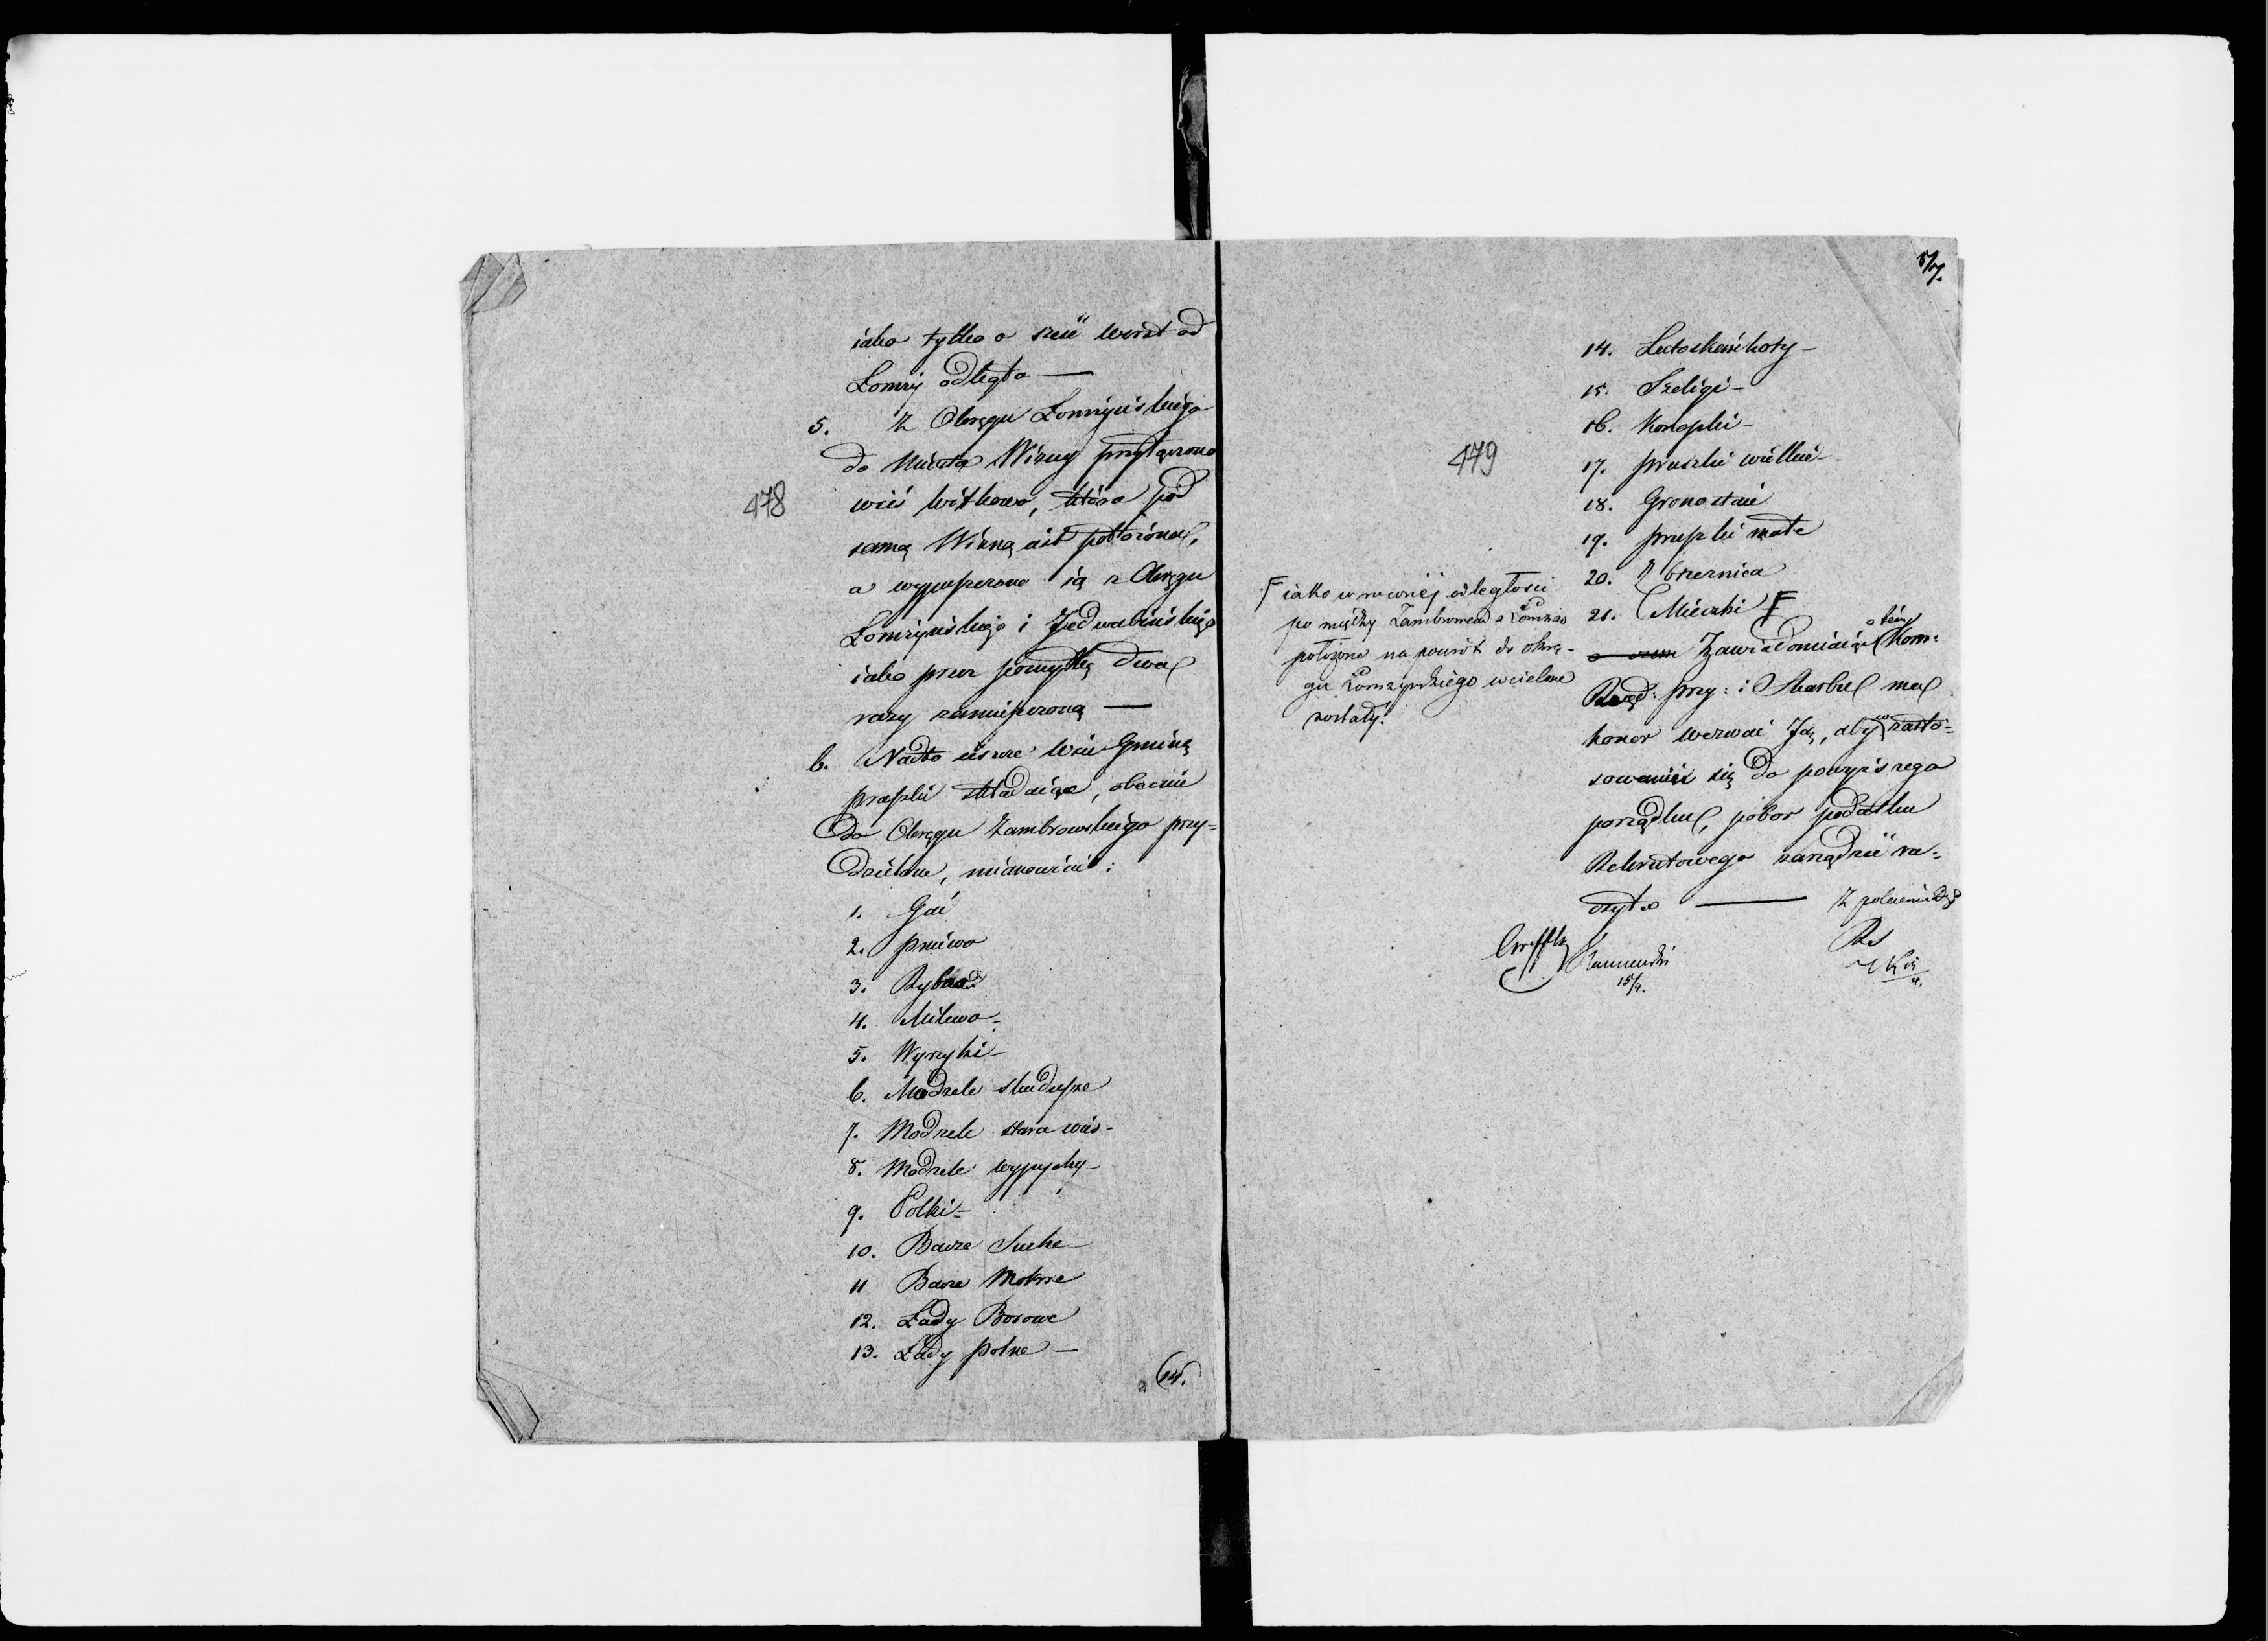 478
iako tylko o sześć worst od
Łomży odległa —
5. Z Okręgu Łomżyńskiego
do Miasta Wizny przyłączono
wieś Witkowo, która pod
samą Wizną iest położona,
a wypuszczono ią z Okręgu
Łomżyńskiego i Jedwabińskiego
iako przez pomyłkę dwa
razy zamieszczoną —
6. Nadto ieszcze wsie Gminę
Pruszki składaiące, obecnie
do Okręgu Zambrowskiego przy=
dzielone, mianowicie:
1. Gać
2. Pniewo
3. Rybno
4. Milewo -
5. Wyrzyki -
6. Modzele skudosze
7. Modzele stara wieś -
8. Modzele wypychy -
9. Polki -
10. Bacze Suche
11 Bacze Mokre
12. Łady Borowe
13. Łady polne —
(14.
479
14. Lutostań koty -
15. Szeligi -
16. Konopki -
17. Pruszki wielkie -
18. Gronostaie
19. Pruszki małe
20. Zbrzeźnica
21. Mieczki F
F iako w rowney odległości
po między Zambrowem a Łomżą
położone na powrót do okrę-
gu Łomżyńskiego wcielone
zostały.
o czem Zawiadomiaiąc o tem Kom:
Rząd: Przy: i Skarbu ma
honor wezwać Ją, aby w zasto=
sowaniu się do powyższego
porządku, pobor podatku
Rekrutowego zarządzić ra=
czyła — Z polecenia
15/4.